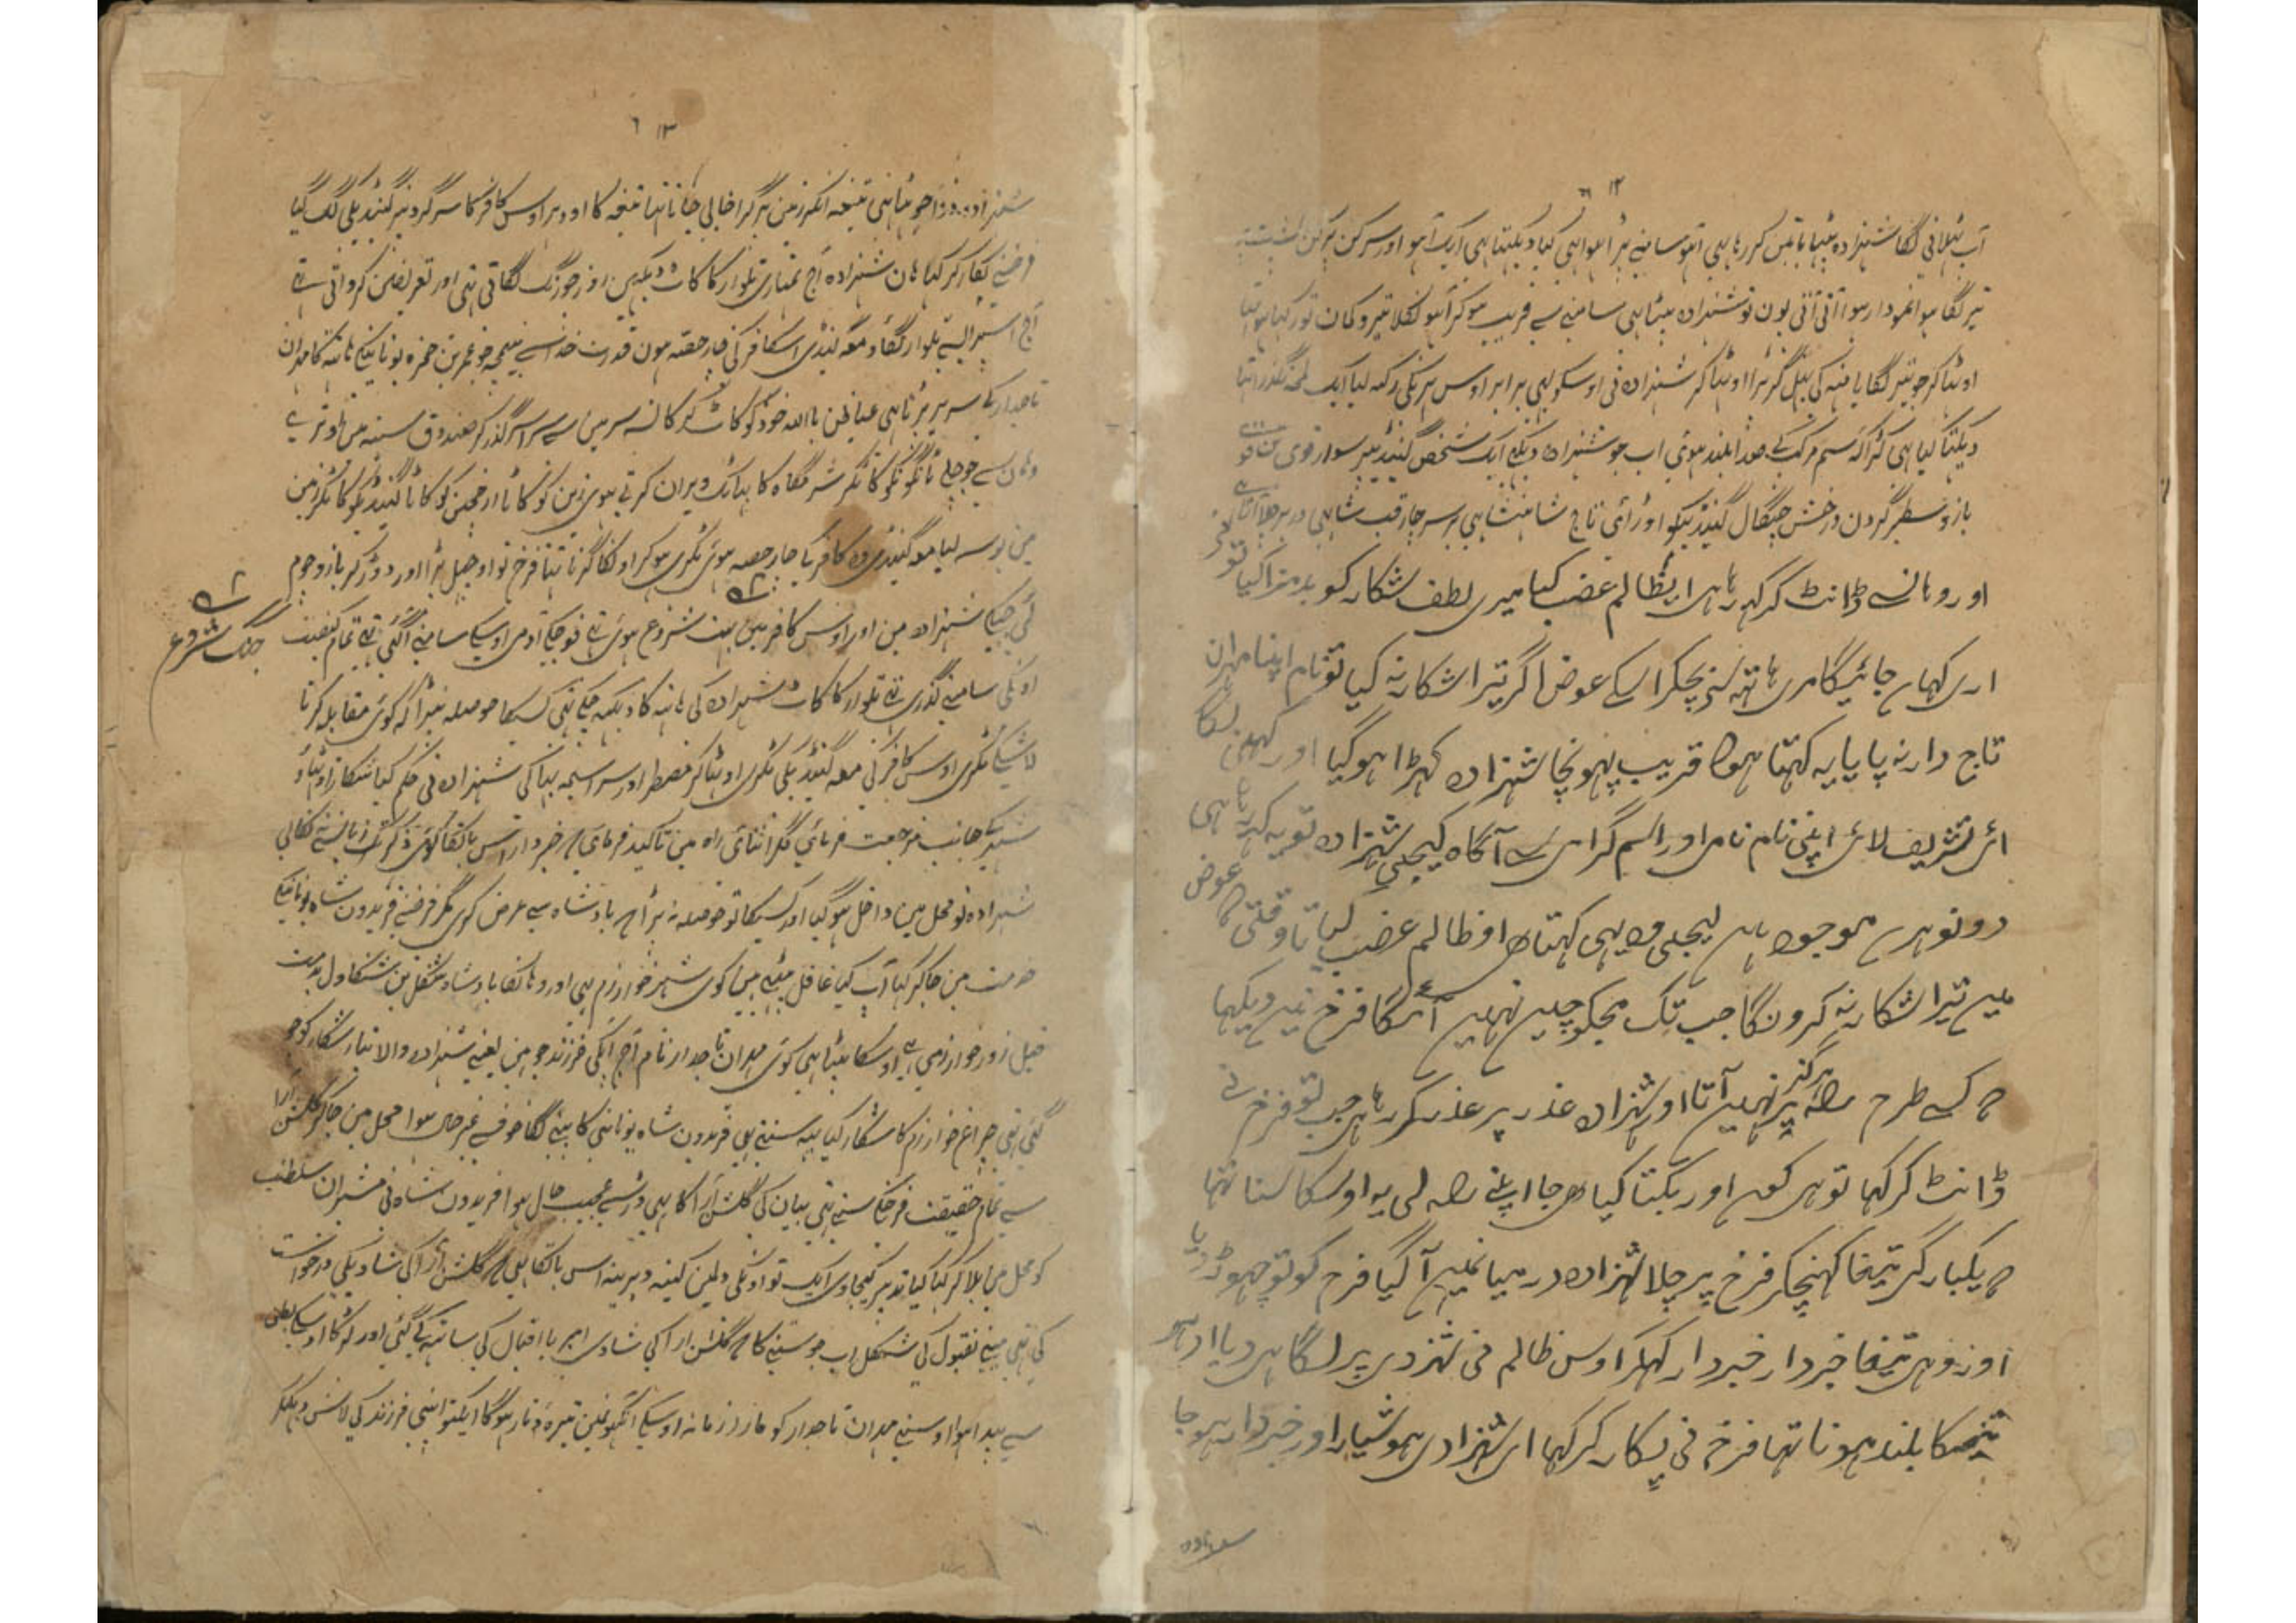 ١٢
آب پلانی لگا شہزادہ بیٹھا باتیں کر رہا ہی آہو سامنے پڑا ہوا ہی کیا دیکھتا ہی ایک آہو اور سرکن
تیر لگا ہوا نمودار ہوا آتی آتی یون تو شہزادہ بیٹھا ہی سامنے سے قریب ہو کر آہو نکلا تیر و کمان
اوٹھا کر جو تیر لگایا منہ کی بھل گر پڑا اوٹھا کر شہزادہ فی اوسکو بھی برابر اوس ہرنکی رکھ لیا ایک لمحہ گذرا تھا
دیکھتا کیا ہی کڑاکہ سم مرکب کے صدا بلند ہوئی اب جو شہزادہ دیکھے ایک شخص گینڈے پر سوار قوی تن
بازو سطبر گردن درخش چنگال گینڈیکو اوڑائی تاج شاہنشاہی بر سر چار قب شاہی در بر چلا آتا ہے
اور وہانسے ڈانٹ کر کہہ رہا ہی ای ظالم غضب کیا میری لطف شکار کو بد مزا کیا تو
اری کہاں جائیگا مری ہاتھ سے بچکر اسکے عوض اگر تیرا شکار نہ کیا تو نام اپنا مہران
تاج دار نہ پایا یہ کہتا ہوا قریب پہونچا شہزادہ کہڑا ہوگیا اور کہنی لگا
ائی تشریف لائی اپنی نام نامی اور اسم گرامی سے آگاہ کیجیی شہزادہ تو یہ کہہ رہا ہی
دونو ہرن موجود ہین لیجیی وہ یہی کہتا ہی او ظالم غضب کیا تا وقتی کا عوض
مین تیرا شکار نہ کرونگا جب تک مجکو چین نہین آئیگا فرخ نی دیکھا
کسے طرح راہ پر ہرگز نہین آتا اور شہزادہ عذر پر عذر کر رہا ہی جب تو فرخ نے
ڈانٹ کر کہا تو ہی کون اور بکتا کیا ہی جا اپنے راہ لی یہ اوسکا سنا تھا
یکبارگی تیغا کہنچکر فرخ پر چلا شہزادہ درمیانمین آگیا فرخ کو تو چھوڑ دیا
اور وہی تیغا خبردار خبردار کہکر اوس ظالم فی شہزادی پر لگا ہی دیا ادہر
تیغیکا بلند ہونا تہا فرخ فی پکار کر کہا ای شہزادی ہوشیار اور خبردار ہو جا
شہزادہ
١٣
شہزادہ نی تیغہ انکر زمین پر گرا خالی جانا تھا تیغہ کا اودہر اوس کافر کا سر گردن پر گینڈیکی لگ گیا
فرخنے پکار کر کہا ہان شہزادہ آج تمہاری تلوار کا کاٹ دیکہین اور جو زنگ لگاتی تہی اور تعریفین کرواتی تھے
آج اسپر ایسی تلوار لگاؤ معہ گینڈی اس کافر کی چار حصہ ہون قدرت خدا سے بن حمزہ یونانیکی ہاتھ کا
تاجدار کے سر پر پڑتا ہی عیاذا باللہ خود کو کاٹ کر کاسہ سر مین سے سراسر گذر کر صندوق سینہ مین در آئے
وہان سے جو چلے شرمگاہ کا پہاٹک ویران کرتے ہوی زین کو کاٹا گینڈیکو کاٹکر زمین
مین بوسہ لیا معہ گینڈی وہ کافر نا چار حصہ ہوئی ٹکری ہوکر اوسکا گرنا تھا فرخ تو اوچھل پڑا اور دوڑ کر بازو چوم
لئی جبکے شہزادہ مین اور اوس کافر مین شروع ہوئی تھے فوجکے آدمی اوسیکے سامنے آگئی تھے تمام کیفیت
جنگ شروع
اونکی سامنے گذری تھے تلوار کا کاٹ شہزادہ کی ہاتھ کا دیکھ چکے تھی کسیکا حوصلہ نپڑا کہ کوئی مقابلہ کرتا
لاشیکے ٹکری اوس کافر کی معہ گینڈیکی ٹکری اوٹھا کر مضطر اور سراسیمہ بھاگی شہزادہ فی حکم کیا شکار اوٹھاؤ
شہر کے جانب مرجعت فرمائی مگر اثنائی راہ مین تاکید فرمائی خبردار اس باتکا کوئی ذکر زبانسے نکالی
شہزادہ تو محل مین داخل ہوگیا اور کسیکا تو حوصلہ نہ پڑا بادشاہ سے عرض کری مگر فرخنے فریدون شاہ یونانیکے
خدمت مین جاکر کہا آپ کیا غافل بیٹھے ہین کوئی شہر خوارزم ہی اور وہانکا بادشاہ
فیل زور خوارزمی ہے اوسکا بیٹا ہی کوئی مہران تاجدار نام آج آپکی فرزند جو ہین یعنے شہزادہ والا تبار شکار کو جو
گئی تھی چراغ خوارزم کا شکار کیا یہ سنتے ہی فریدون شاہ یونانی کانپنے لگا خوفسے غیر حال ہوا محل مین جاکر گلشن آرا
سے تمام حقیقت فرخکے سنے ہی بیان کی گلشن آرا کا ہی ڈرسے عجیب حال ہوا فریدون شاہ نی مشیران سلطنت
کو محل مین بلا کر کہا کیا تدبیر کیجاوی ایک تو اونکی دلمین کینہ دیرینہ اس باتکا ہی گلشن آرا کی شادیکی درخواست
کی تھی مینے نقبول کی شکل اب جو سنیگا گلشن آرا کی شادی امیر با اقبال کی ساتھ کی گئی اور لڑکا اوسکے بطن
سے پیدا ہوا اوسنے مہران تاجدار کو مارا زمانہ اوسکی آنکھونمین تیرہ و تار ہوگا اپنی فرزند کی لاش دیکھکر